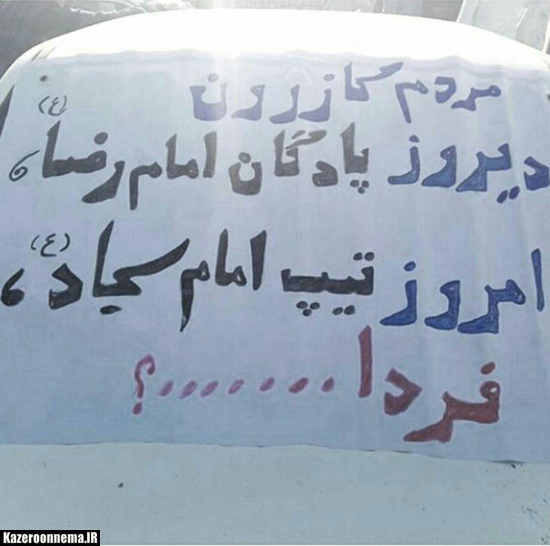 مردم کازرون
دیروز پادگان امام رضا (ع)،
امروز تیپ امام سجاد (ع)،
فردا........؟
Kazeroonnema.IR